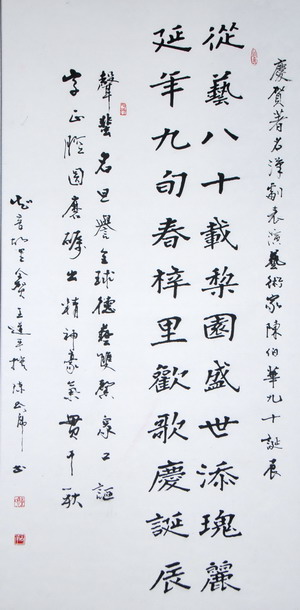 慶賀著名漢劇表演藝術家陳伯華九十誕辰
從藝八十載梨園盛世添瑰麗
延年九旬春梓里歡歌慶誕辰
聲蜚名旦譽全球德藝雙馨衆口謳
字正腔圓磨礪出精神豪氣貫千秋